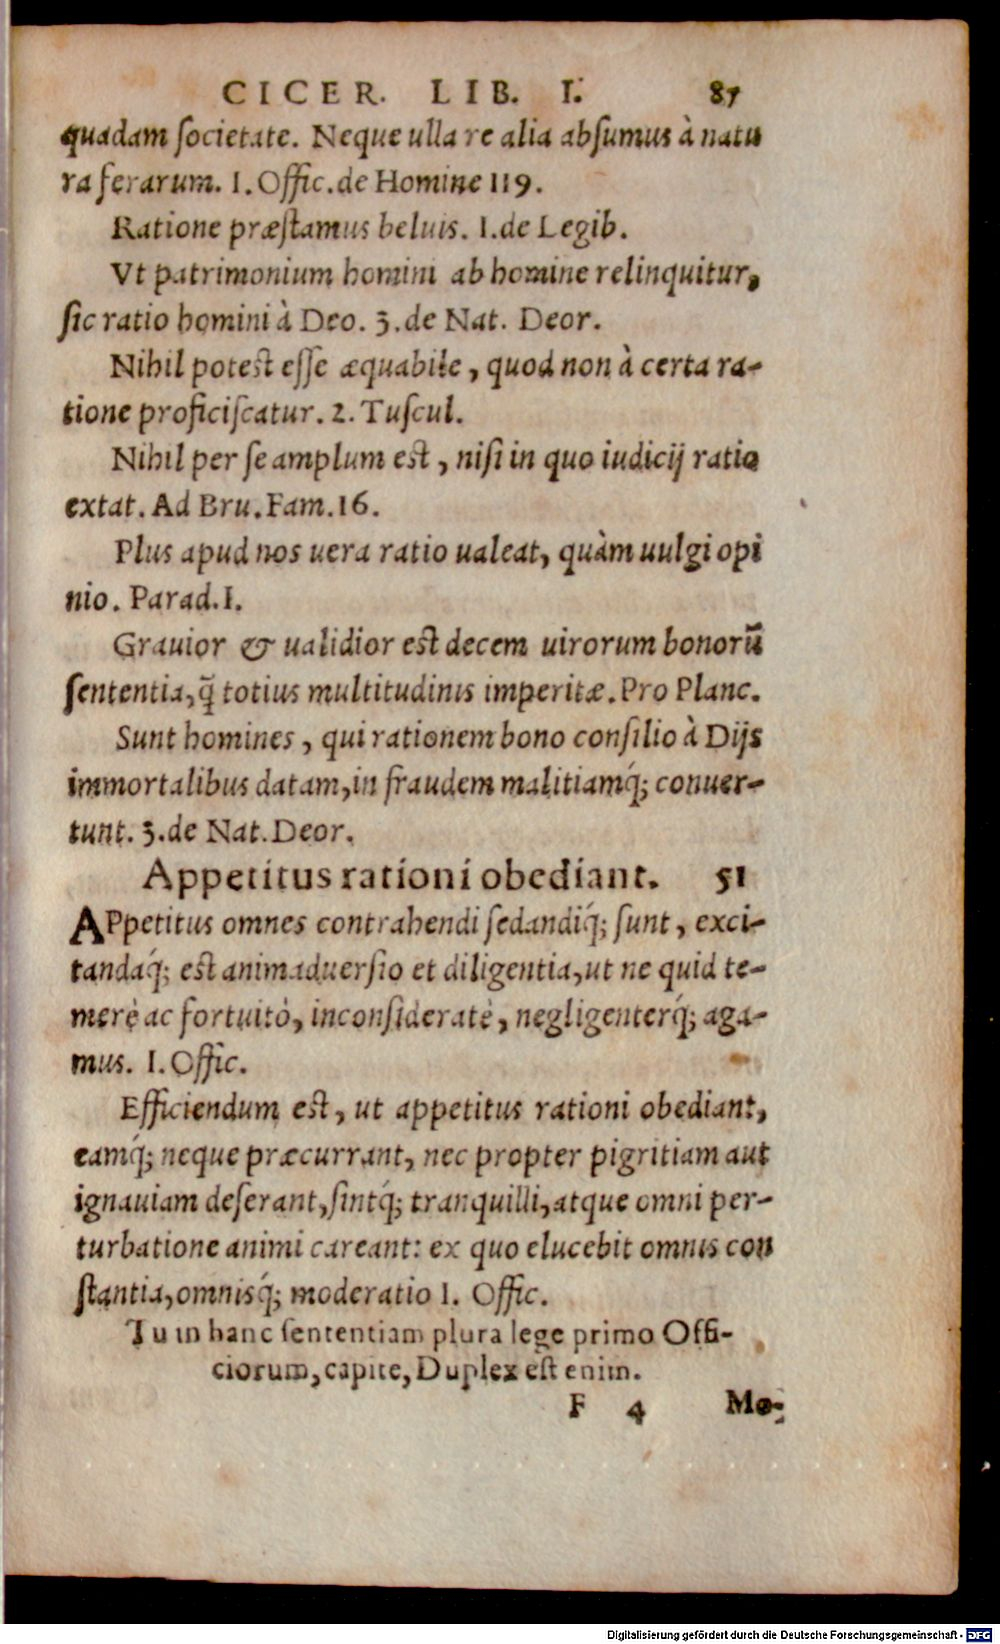 CICER. LIB. I. 87
quadam societate. Neque ulla re alia absumus à natu
ra ferarum. 1. Offic. de Homine 119.
Ratione præstamus beluis. 1. de Legib.
Vt patrimonium homini ab homine relinquitur,
sic ratio homini à Deo. 3. de Nat. Deor.
Nihil potest esse æquabile, quod non à certa ra-
tione proficiscatur. 2. Tuscul.
Nihil per se amplum est, nisi in quo iudicij ratio
extat. Ad Bru. Fam. 16.
Plus apud nos uera ratio ualeat, quàm uulgi opi
nio. Parad. 1.
Grauior & ualidior est decem uirorum bonorũ
sententia, q̃ totius multitudinis imperitæ. Pro Planc.
Sunt homines, qui rationem bono consilio à Dijs
immortalibus datam, in fraudem malitiamq́; conuer-
tunt. 3. de Nat. Deor.
Appetitus rationi obediant. 51
APpetitus omnes contrahendi sedandiq́; sunt, exci-
tandaq́; est animaduersio et diligentia, ut ne quid te-
merè ac fortuitò, inconsideratè, negligenterq́; aga-
mus. 1. Offic.
Efficiendum est, ut appetitus rationi obediant,
eamq́; neque præcurrant, nec propter pigritiam aut
ignauiam deserant, sintq́; tranquilli, atque omni per-
turbatione animi careant: ex quo elucebit omnis con
stantia, omnisq́; moderatio 1. Offic.
Tu in hanc sententiam plura lege primo Offi-
ciorum, capite, Duplex est enim.
F 4 Mo-
Digitalisierung gefördert durch die Deutsche Forschungsgemeinschaft - DFG